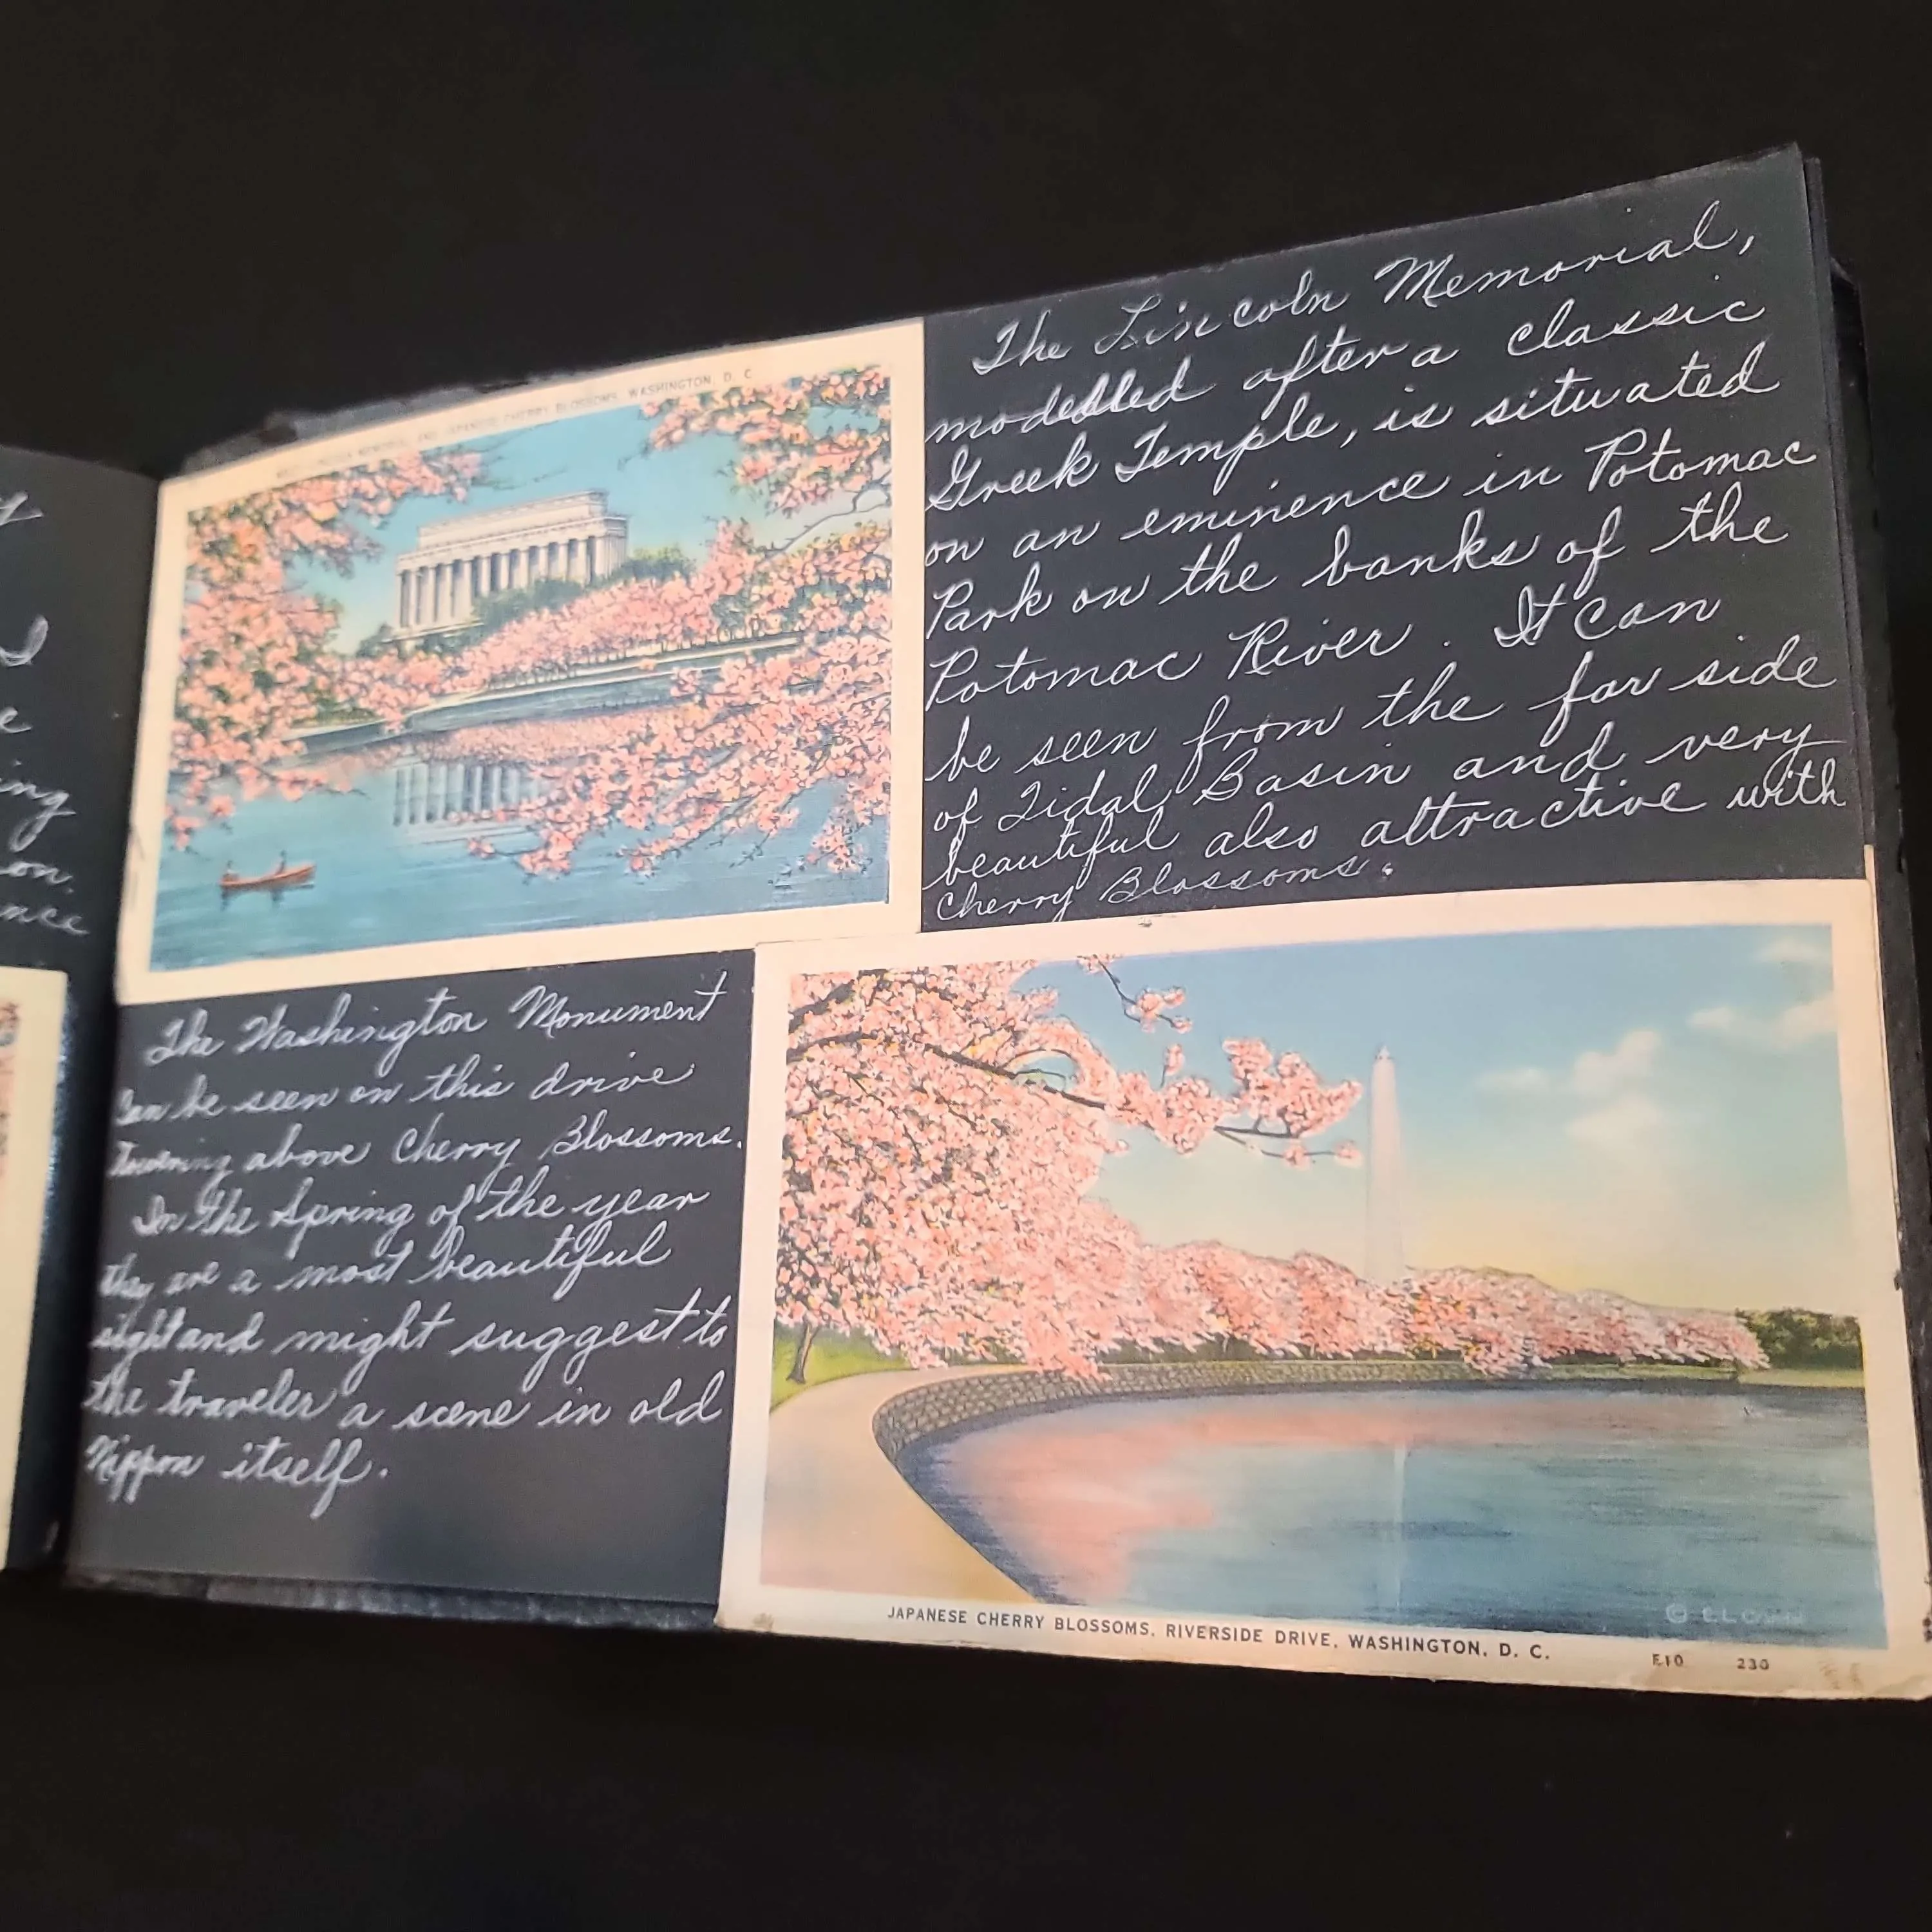 y
d
e
ing
on.
nce
LINCOLN MEMORIAL AND JAPANESE CHERRY BLOSSOMS, WASHINGTON, D. C.
The Lincoln Memorial,
modelled after a classic
Greek Temple, is situated
on an eminence in Potomac
Park on the banks of the
Potomac River. It can
be seen from the far side
of Tidal Basin and very
beautiful also attractive with
Cherry Blossoms.
The Washington Monument
Can be seen on this drive
towering above Cherry Blossoms.
In the Spring of the year
they are a most beautiful
sight and might suggest to
the traveler a scene in old
Nippon itself.
©
JAPANESE CHERRY BLOSSOMS, RIVERSIDE DRIVE, WASHINGTON, D. C.
E10 230